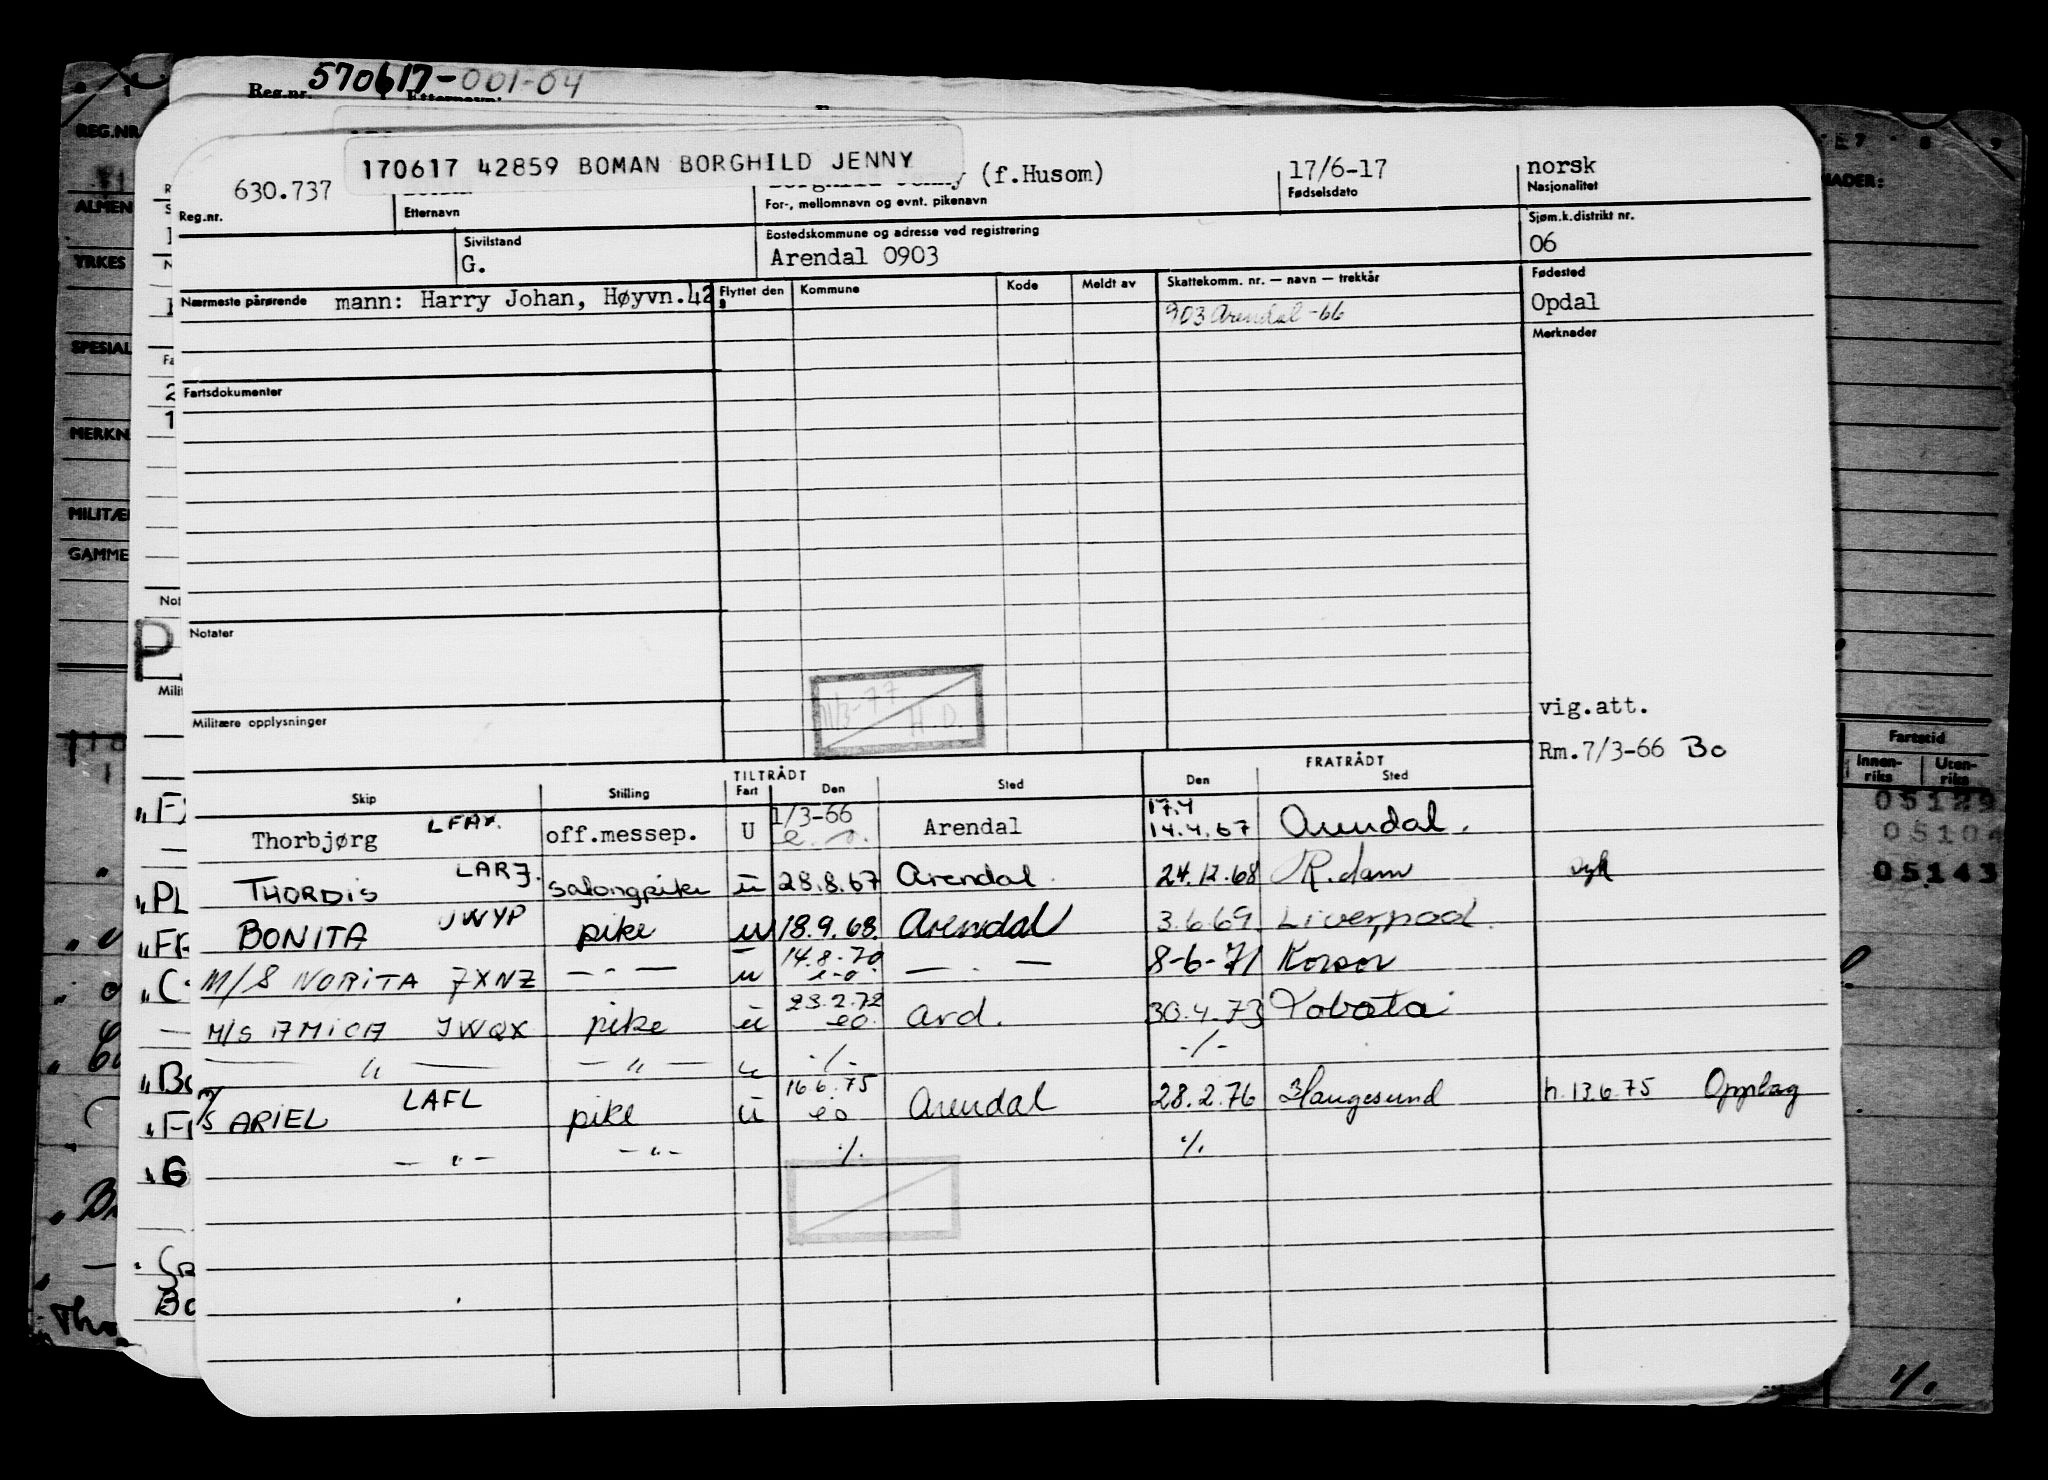 Reg.nr. 570617-001-04
170617 42859 BOMAN BORGHILD JENNY
630.737 (f.Husom) 17/6-17 norsk
Reg.nr. Etternavn For-, mellomnavn og evnt. pikenavn Fødselsdato Nasjonalitet
Sivilstand Bostedskommune og adresse ved registrering Sjøm.k.distrikt nr.
G. Arendal 0903 06
Nærmeste pårørende mann: Harry Johan, Høyvn.42 Flyttet den Kommune Kode Meldt av Skattekomm. nr. — navn — trekkår Fødested
903 Arendal -66 Opdal
Merknader
Fartsdokumenter
Notater
11/3-77 H.D.
Militære opplysninger
vig.att.
Rm.7/3-66 Bo
TILTRÅDT FRATRÅDT
Skip Stilling Fart Den Sted Den Sted
Thorbjørg LFAX. off.messep. U 1/3-66 Arendal 17.4 14.4.67 Arendal.
THORDIS LARJ. salongpike u 28.8.67 Arendal. 24.12.68 R.dam syk
BONITA JWYP pike u 18.9.68. Arendal 3.6.69. Liverpool.
M/S NORITA JXNZ — . — u 14.8.70 e.o. — . — 8-6-71 Korsør
M/S AMICA JWQX pike u 23.2.72 eo. Ard. 30.4.73 Tobata
— " — — " — " -/- -/-
M/S ARIEL LAFL pike u 16.6.75 eo Arendal 28.2.76 Haugesund h.13.6.75 Opplag
— " — — " — ./. ./.
REG.NR
ALMEN
YRKES
SPESIAL
MERKN
MILITÆ
GAMME
NADER:
P
Fartstid
Innen-riks Uten-riks
05129
05104
05143